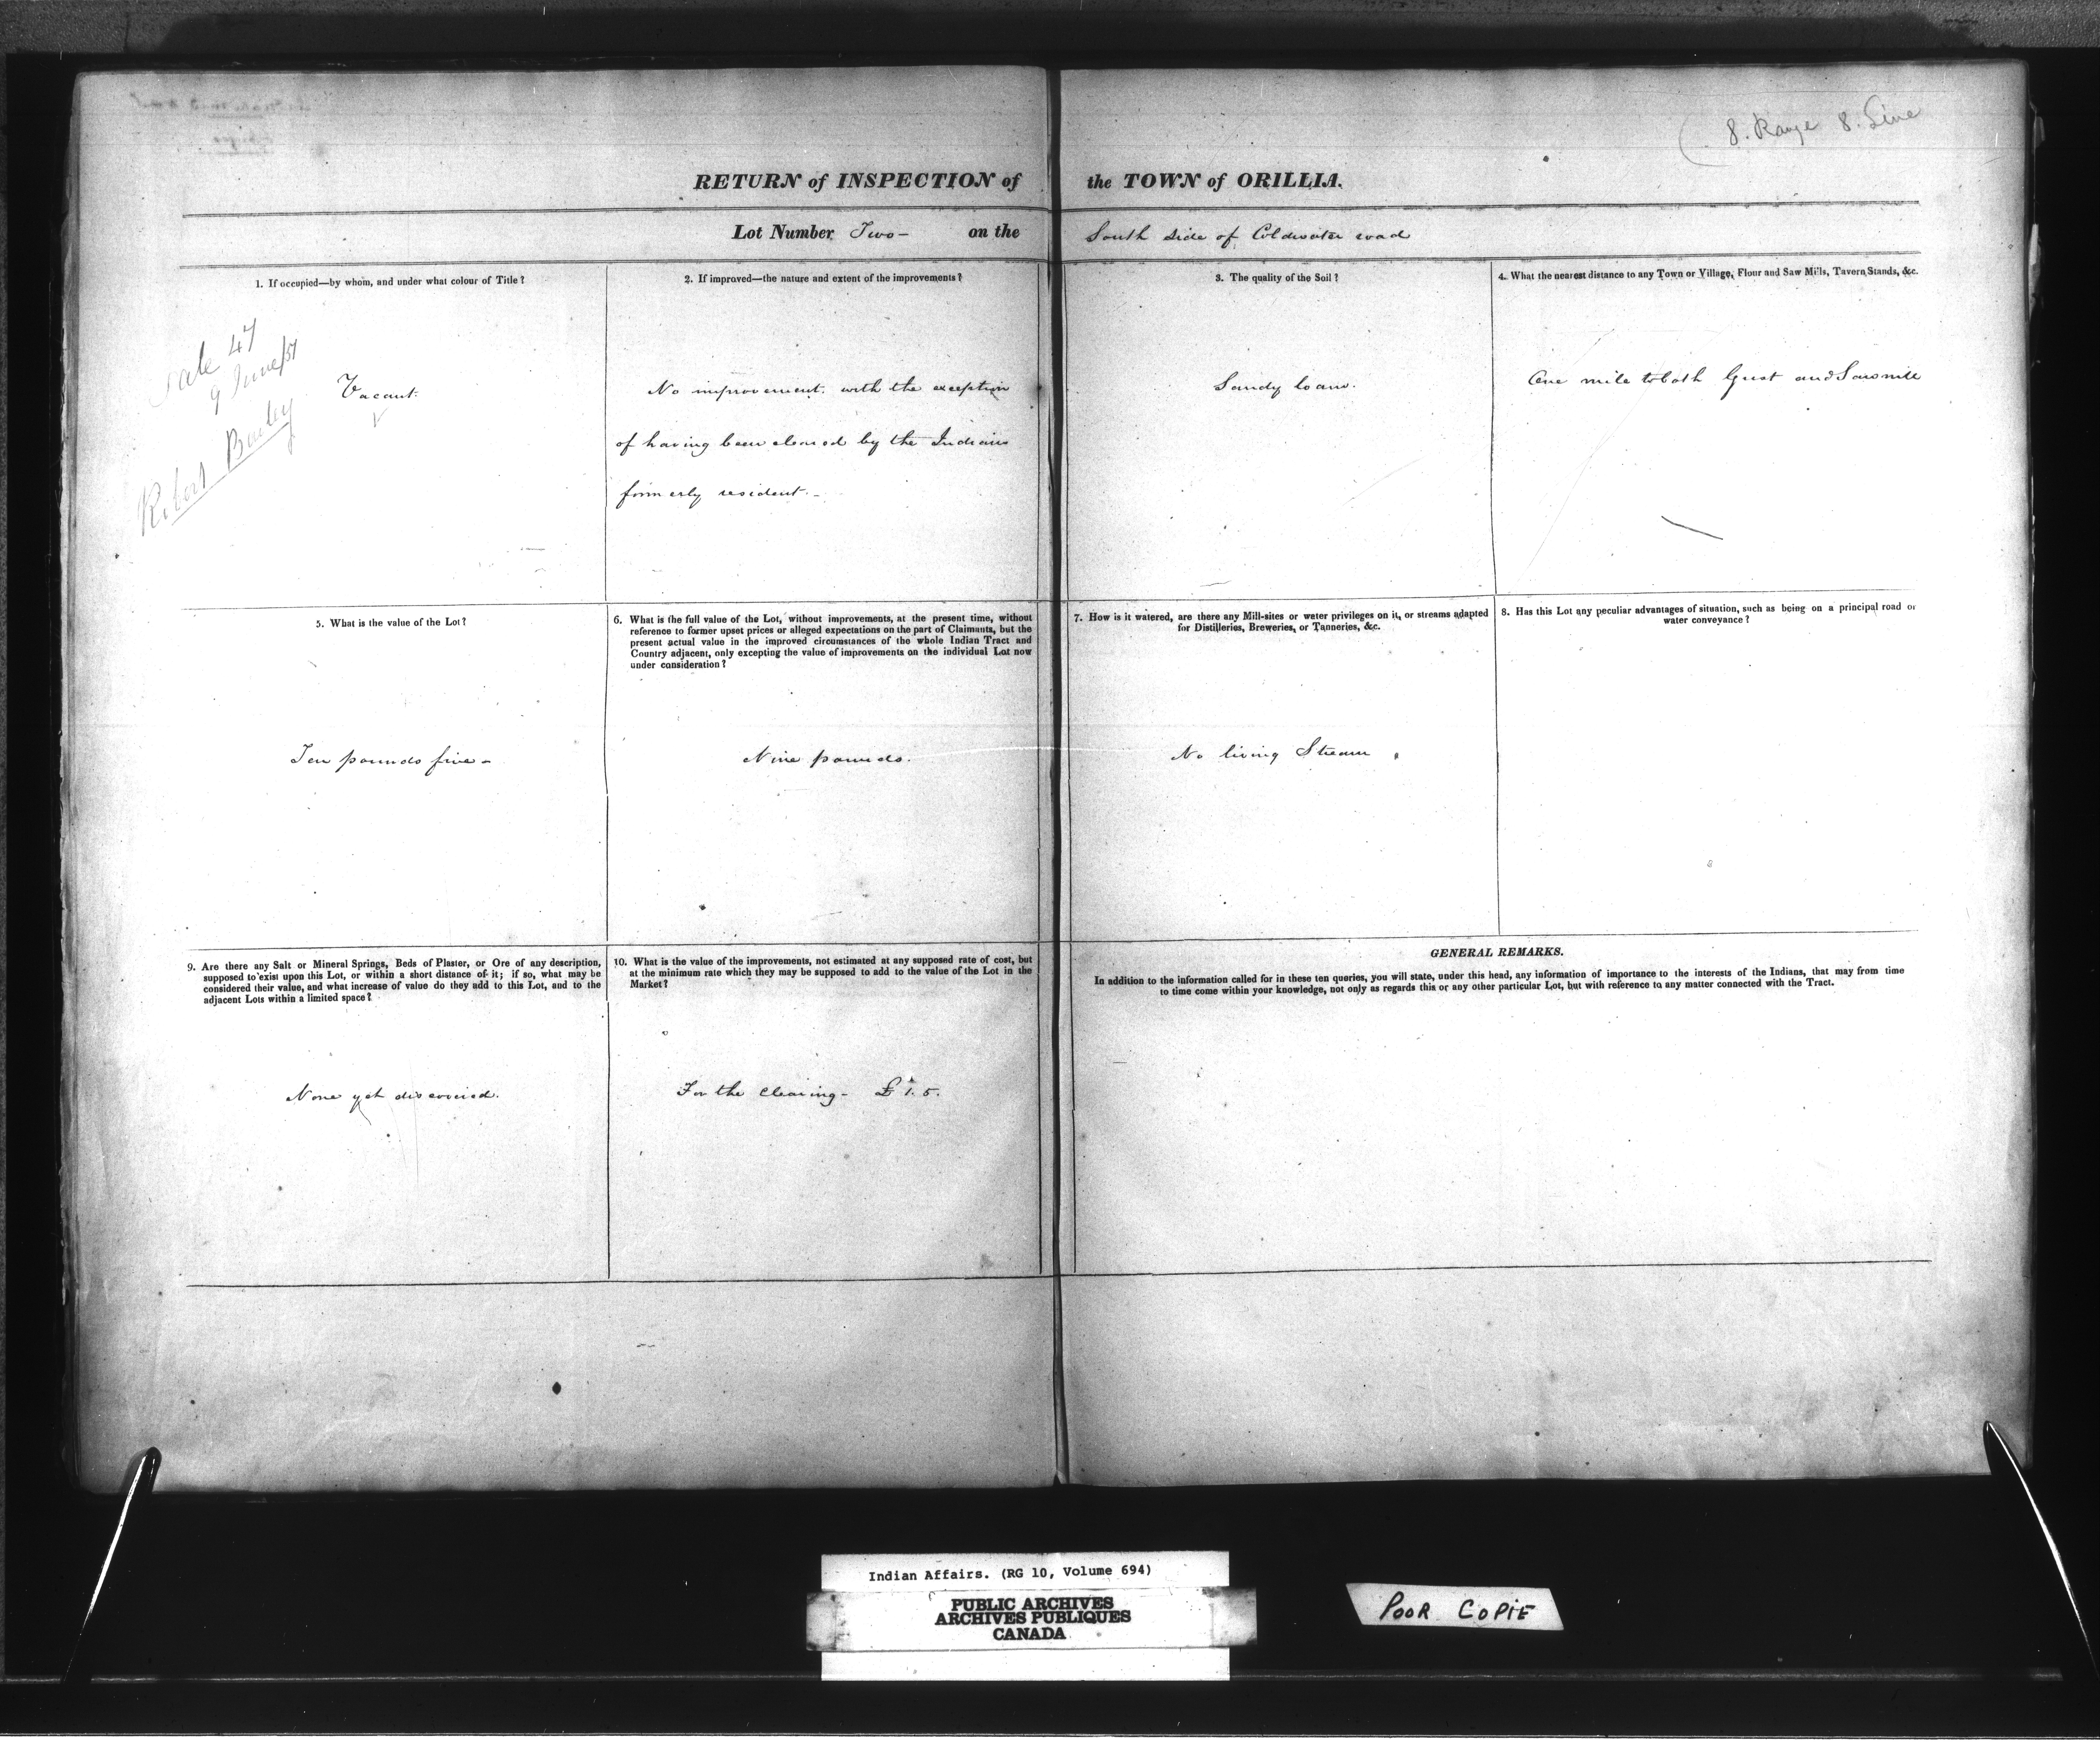 8. Range 8. Line
RETURN of INSPECTION of the TOWN of ORILLIA.
Lot Number Two - on the South side of Coldwater road
1. If occupied—by whom, and under what colour of Title?
Sale 47
9 June/51
Robert
Vacant.
2. If improved—the nature and extent of the improvements?
No improvement. with the exception
of having been cleared by the Indians
formerly resident. -
3. The quality of the Soil?
Sandy loam.
4. What the nearest distance to any Town or Village, Flour and Saw Mills, Tavern Stands, &c.
One mile to both Grist and Sawmill
5. What is the value of the Lot?
Ten pounds five -
6. What is the full value of the Lot, without improvements, at the present time, without
reference to former upset prices or alleged expectations on the part of Claimants, but the
present actual value in the improved circumstances of the whole Indian Tract and
Country adjacent, only excepting the value of improvements on the individual Lot now
under consideration?
Nine pounds.
7. How is it watered, are there any Mill-sites or water privileges on it, or streams adapted
for Distilleries, Breweries, or Tanneries, &c.
No living Stream
8. Has this Lot any peculiar advantages of situation, such as being on a principal road or
water conveyance?
9. Are there any Salt or Mineral Springs, Beds of Plaster, or Ore of any description,
supposed to exist upon this Lot, or within a short distance of it; if so, what may be
considered their value, and what increase of value do they add to this Lot, and to the
adjacent Lots within a limited space?
None yet discovered.
10. What is the value of the improvements, not estimated at any supposed rate of cost, but
at the minimum rate which they may be supposed to add to the value of the Lot in the
Market?
For the clearing - £ 1. 5.
GENERAL REMARKS.
In addition to the information called for in these ten queries, you will state, under this head, any information of importance to the interests of the Indians, that may from time
to time come within your knowledge, not only as regards this or any other particular Lot, but with reference to any matter connected with the Tract.
Indian Affairs. (RG 10, Volume 694)
PUBLIC ARCHIVES
ARCHIVES PUBLIQUES
CANADA
POOR COPIE